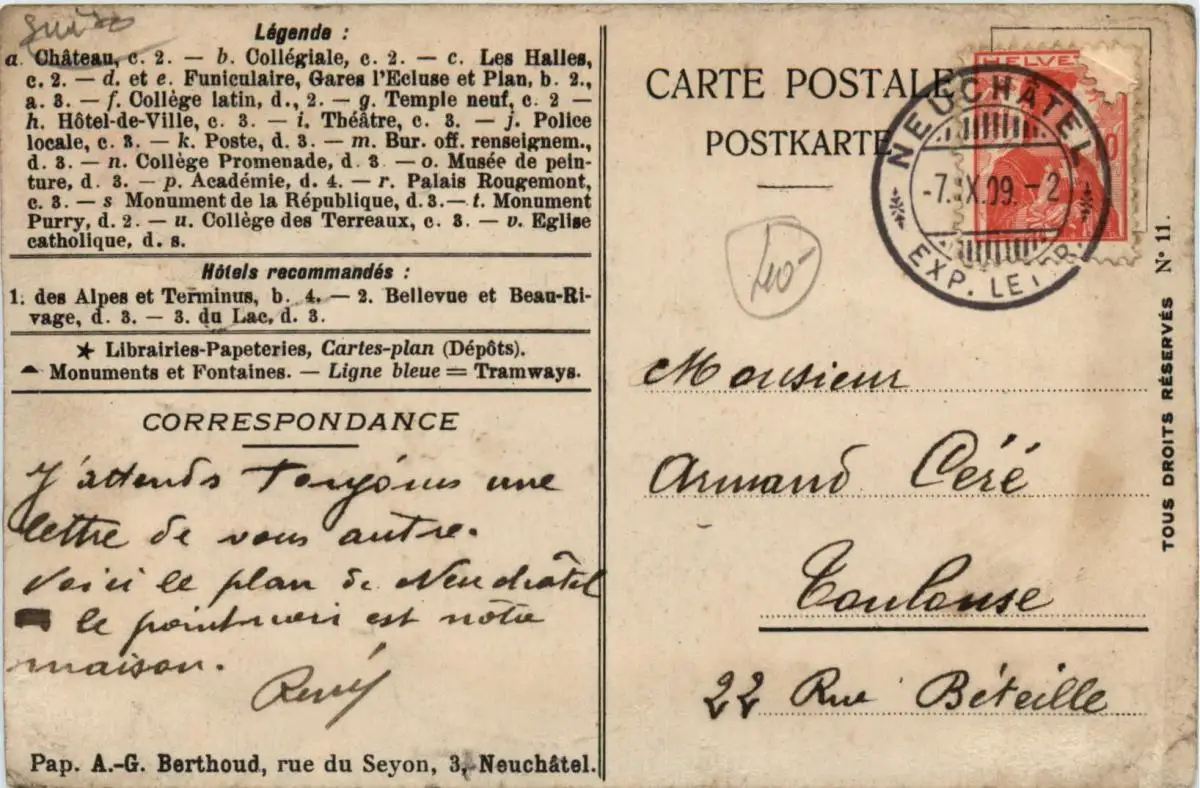 Légende :
a. Château, c. 2. — b. Collégiale, c. 2. — c. Les Halles,
c. 2. — d. et e. Funiculaire, Gares l'Ecluse et Plan, b. 2.,
a. 3. — f. Collège latin, d., 2. — g. Temple neuf, c. 2 —
h. Hôtel-de-Ville, c. 3. — i. Théâtre, c. 3. — j. Police
locale, c. 3. — k. Poste, d. 3. — m. Bur. off. renseignem.,
d. 3. — n. Collège Promenade, d. 3 — o. Musée de pein-
ture, d. 3. — p. Académie, d. 4. — r. Palais Rougemont,
c. 3. — s Monument de la République, d. 3. — t. Monument
Purry, d. 2. — u. Collège des Terreaux, c. 3. — v. Eglise
catholique, d. s.
Hôtels recommandés :
1. des Alpes et Terminus, b. 4. — 2. Bellevue et Beau-Ri-
vage, d. 3. — 3. du Lac, d. 3.
★ Librairies-Papeteries, Cartes-plan (Dépôts).
Monuments et Fontaines. — Ligne bleue = Tramways.
CORRESPONDANCE
J'attends toujours une
lettre de vous autre.
Voici le plan de Neuchâtel
le point noir est notre
maison.
René
Pap. A.-G. Berthoud, rue du Seyon, 3, Neuchâtel.
CARTE POSTALE
POSTKARTE
HELVE
NEUCHÂTEL
-7.IX.09.-2
EXP. LETTR.
40-
Monsieur
Armand Céré
Toulouse
22 Rue Béteille
TOUS DROITS RÉSERVÉS Nº 11.